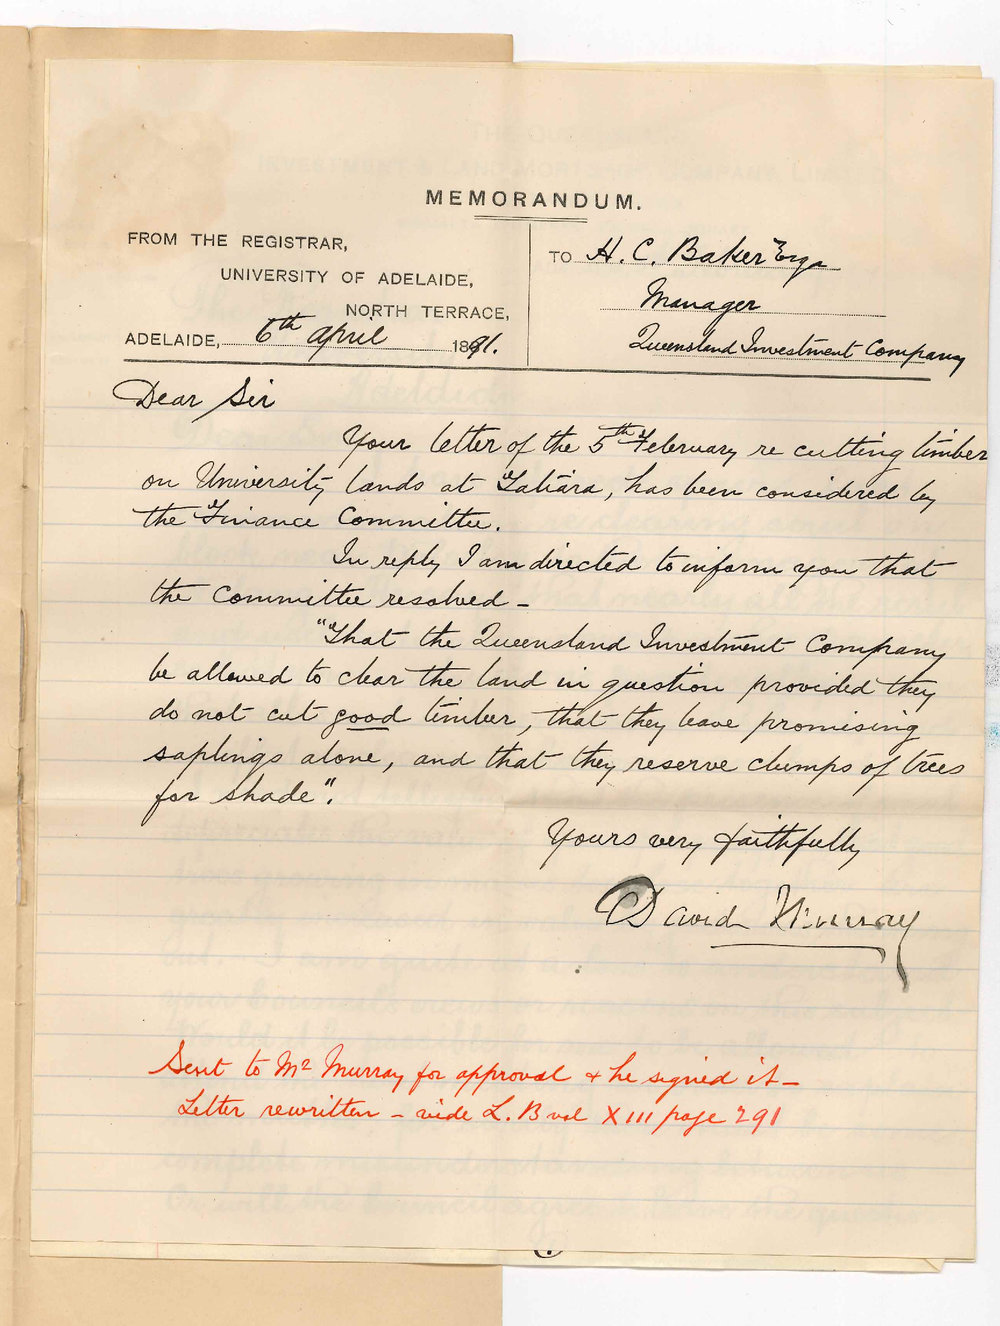 MEMORANDUM.
FROM THE REGISTRAR,
UNIVERSITY OF ADELAIDE,
NORTH TERRACE,
ADELAIDE, 6th April 1891.
TO H. C. Baker Esqr
Manager
Queensland Investment Company
Dear Sir
Your letter of the 5th February re cutting timber
on University lands at Tatiara, has been considered by
the Finance Committee.
In reply I am directed to inform you that
the Committee resolved –
"That the Queensland Investment Company
be allowed to clear the land in question provided they
do not cut good timber, that they leave promising
saplings alone, and that they reserve clumps of trees
for shade".
Yours very faithfully
David Murray
Sent to Mr Murray for approval & he signed it –
Letter rewritten – vide L. B vol XIII page 291